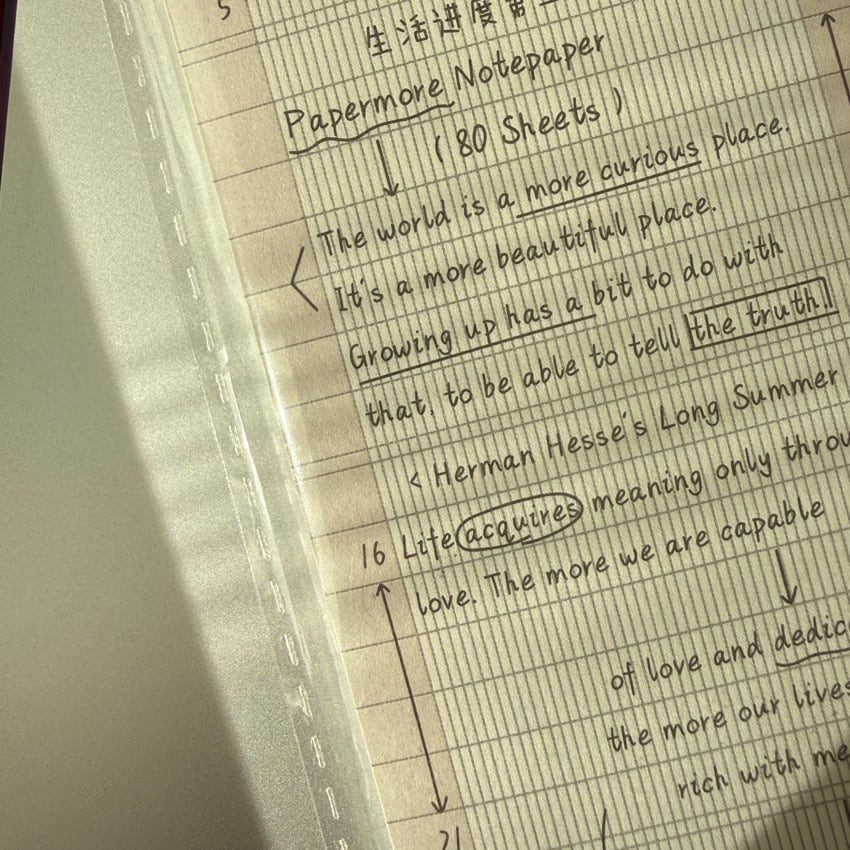 5
生活进度第一
Papermore Notepaper
( 80 Sheets )
The world is a more curious place.
It's a more beautiful place.
Growing up has a bit to do with
that, to be able to tell the truth.
< Herman Hesse's Long Summer
16 Life acquires meaning only throu
love. The more we are capable
of love and dedic
the more our lives
rich with me
21